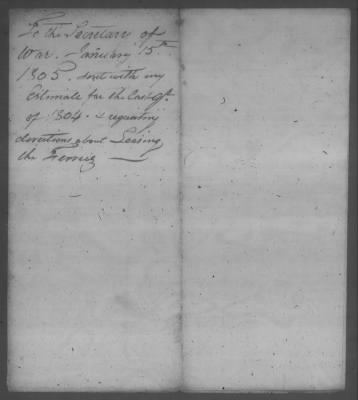 To the Secretary of
War. January 15th
1805. sent with my
Estimate for the last Qr.
of 1804. & requesting
directions about Leasing
the Ferries